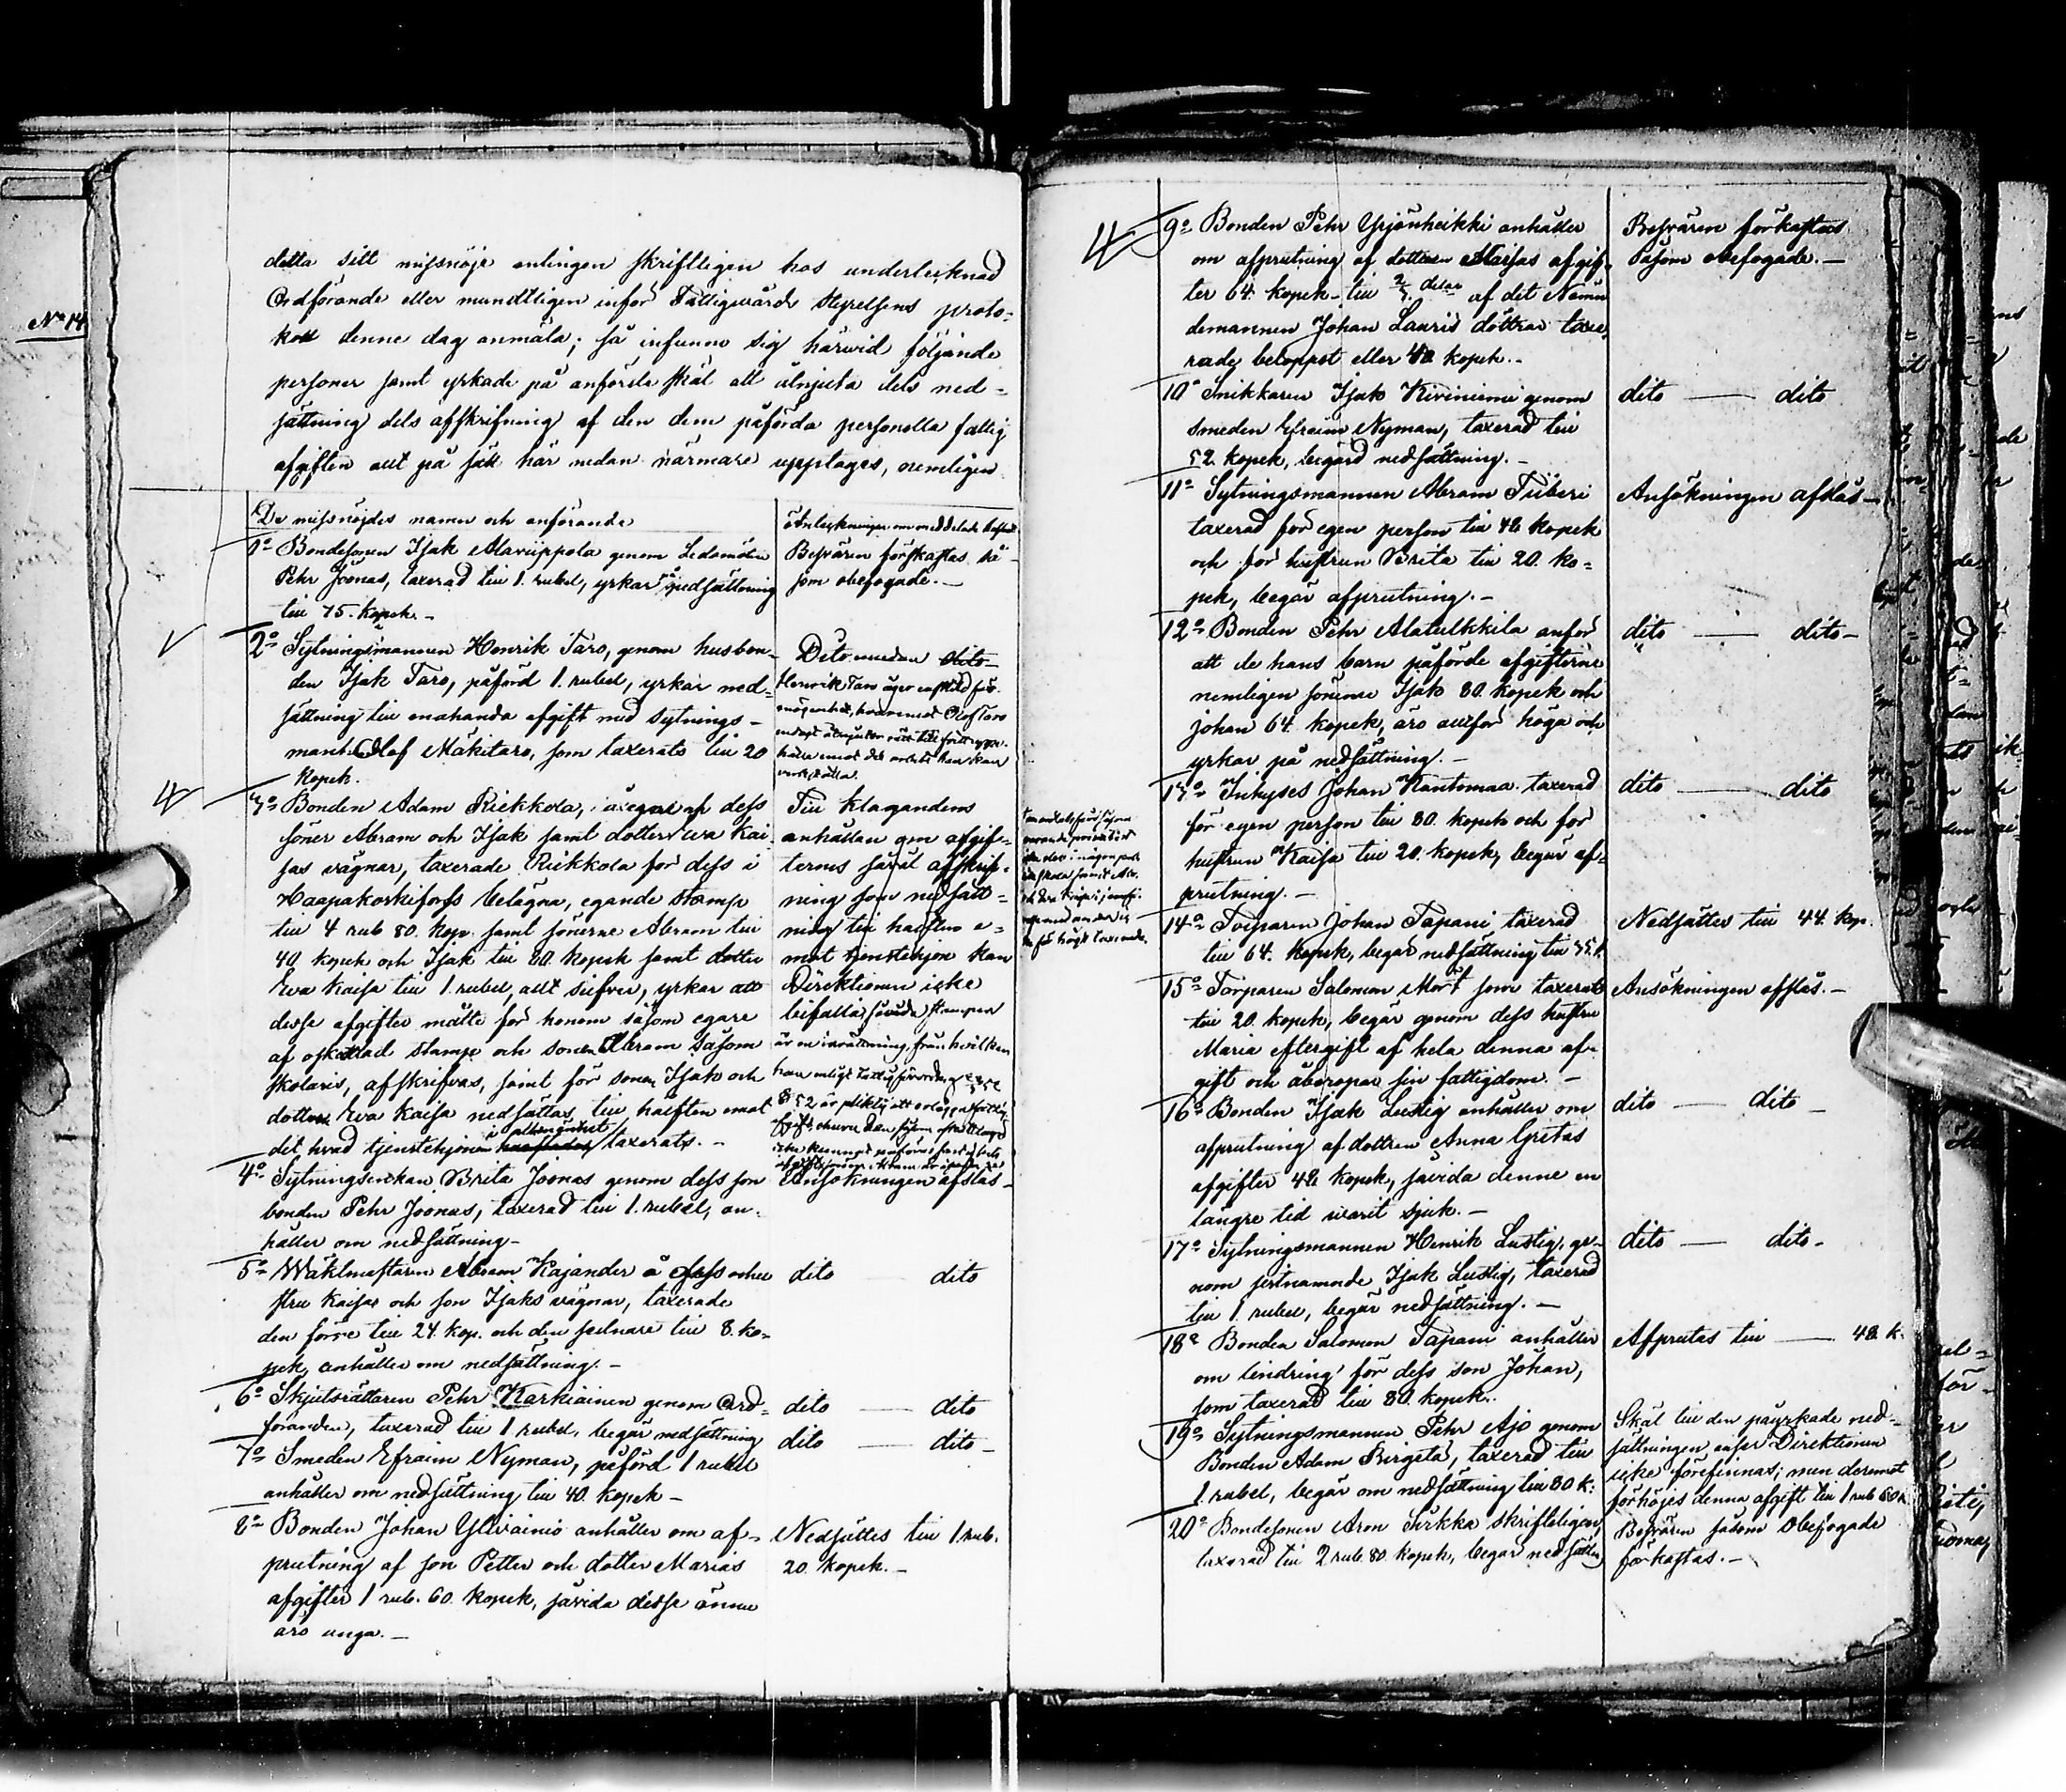 detta sitt missnöje antingen skriftligen hos undertecknad
Ordförande eller mundtligen inför Fattigvårds styrelsens proto-
koll denne dag anmäla; så infunno sig härvid följande
personer samt yrkade på anförde skäl att åtnjuta dels ned-
sättning dels afskrifning af den dem påförda personella fattig
afgiften allt på sätt här nedan närmare upptages, nemligen
De missnöjdes namn och anförande
1o Bondesonen Isak Alaruippola genom Ledamöten
Pehr Joonas, taxerad till 1. rubel, yrkar nedsättning
till 75. kopek. -
Besvären förkastas så-
som obefogade. -
2o Sytningsmannen Henrik Taro, genom husbon-
den Isak Taro, påförd 1. rubel, yrkar ned-
sättning till enahanda afgift med sytnings-
man Olof Mäkitaro, som taxerats till 20
kopek.
Dito emedan dito
Henrik Taro äger enskild för-
mögenhet, hvaremot Olof Taro
endast åtnjuter rätt till fritt uppe-
hälle emot det arbete han kan
verkställa.
3o Bonden Adam Riekkola, i af dess
söner Abram och Isak samt dotter Eva Kai
sas vägnar, taxerade Riekkola för dess i
Haapakoskifors belägna, egande stamp
till 4 rub 80. kop. samt sönerne Abram till
40 kopek och Isak till 80. kopek samt dotter
Eva Kaisa till 1. rubel, allt silfver, yrkar att
desse afgifter måtte för honom såsom egare
af oskattlad stamp och sonen Abram såsom
skolaris, afskrifvas, samt för sonen Isak och
dottren Eva Kaisa nedsättas till hälften emot
det hvad tjenstehjonen i allmänhet taxerats. -
Till klagandens
anhållan om afgif-
ternes såväl afskrif-
ning som nedsätt-
ning till hälften e-
mot tjenstehjon kan
Direktionen icke
bifalla, såvida stampen
är en inrättning, från hvilken
han enligt Fattigförordning 1852
§ 52 är pligtig att erlägga fattig-
4o Sytningsenkan Brita Joonas genom dess son
bonden Pehr Joonas, taxerad till 1. rubel, an-
håller om nedsättning -
Ansökningen afslås -
5o Waktmästaren Abram Kajander å dess och hu
stru Kaisas och son Isaks vägnar, taxerade
den förre till 24. kop. och den sednare till 8. ko-
pek, anhåller om nedsättning. -
dito dito
6o Skjutsrättaren Pehr Karkiainen genom Ord-
föranden, taxerad till 1 rubel, begär nedsättning
dito — dito
7o Smeden Efraim Nyman, påförd 1 rubel
anhåller om nedsättning till 40. kopek -
dito — dito -
8o Bonden Johan Ylivainio anhåller om af-
prutning af son Petter och dotter Marias
afgifter 1 rub. 60. kopek, såvida desse ännu
äro unga. -
Nedsättes till 1. rub.
20. kopek. -
No 14
9o Bonden Pehr Yrjänheikki anhåller
om afprutning af dottren Maijas afgif-
ter 64. kopek till 2/3 delar af det Nämn
demannen Johan Lauris döttrar taxe
rade beloppet eller 40. kopek. -
Besvären förkastas
såsom obefogade. -
10o Snikkaren Isak Kiviniemi genom
smeden Efraim Nyman, taxerad till
52. kopek, begärd nedsättning. -
dito — dito
11o Sytningsmannen Abram Tiiberi
taxerad för egen person till 48 kopek
och för hustrun Brita till 20. ko-
pek, begär afprutning. -
Ansökningen afslås -
12o Bonden Pehr Alatulkkila anför
att de hans barn påförde afgifterne
nemligen sönerne Isak 80. kopek och
Johan 64. kopek, äro alltför höga och
yrkar på nedsättning. -
dito — dito -
13o Inhyses Johan Kantomaa taxerad
för egen person till 80. kopek och för
hustrun Kaisa till 20. kopek, begär af-
prutning. -
dito — dito
14o Torparen Johan Tapani taxerad
till 64. kopek, begär nedsättning till 35 k.
Nedsättes till 44. kop.
15o Torparen Salomon Mört som taxerats
till 20. kopek, begär genom dess hustru
Maria eftergift af hela denna af-
gift och åberopar sin fattigdom. -
Ansökningen afslås. -
16o Bonden Isak Lustig anhåller om
afprutning af dottren Anna Gretas
afgifter 48 kopek, såvida denne en
längre tid varit sjuk. -
dito — dito -
17o Sytningsmannen Henrik Lustig, ge-
nom sistnämnde Isak Lustig, taxerad
till 1. rubel, begär nedsättning. -
dito — dito -
18o Bonden Salomon Tapani anhåller
om lindring för dess son Johan,
som taxerad till 80. kopek.
Afprutas till — 48 k.
19o Sytningsmannen Pehr Ajo genom
Bonden Adam Birgeta, taxerad till
1. rubel, begär om nedsättning till 80 k:
Skäl till den påyrkade ned-
sättningen anser Direktionen
icke förefinnas; men deremot
förhöjes denna afgift till 1 rub 60 k
20o Bondesonen Aron Sirkka skriftligen,
taxerad till 2 rub. 80. kopek, begär nedsättn
Besvären såsom obefogade
förkastas. -